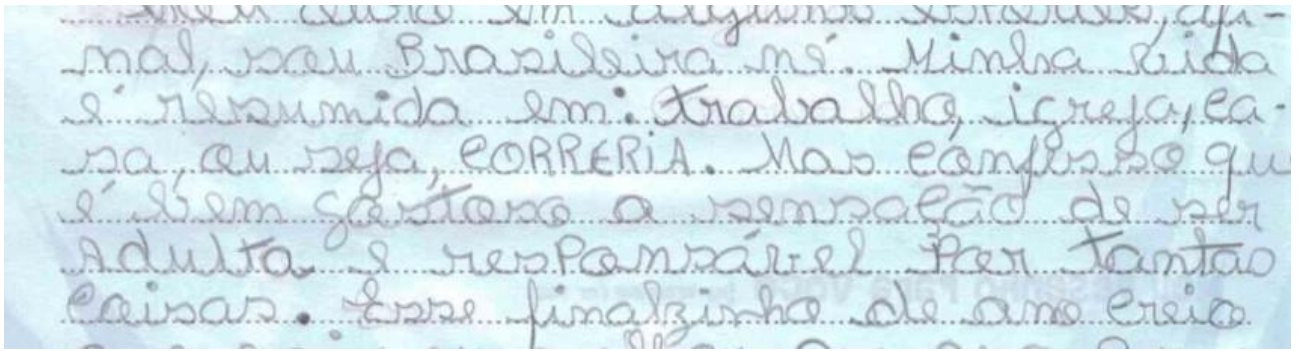 em alguns
nal, sou Brasileira né. Minha vida
é resumida em: trabalho, igreja, ca-
sa, ou seja, CORRERIA. Mas confesso que
é bem gostoso a sensação de ser
Adulta e resPonsável Por tantas
coisas. Esse finalzinho de ano creio